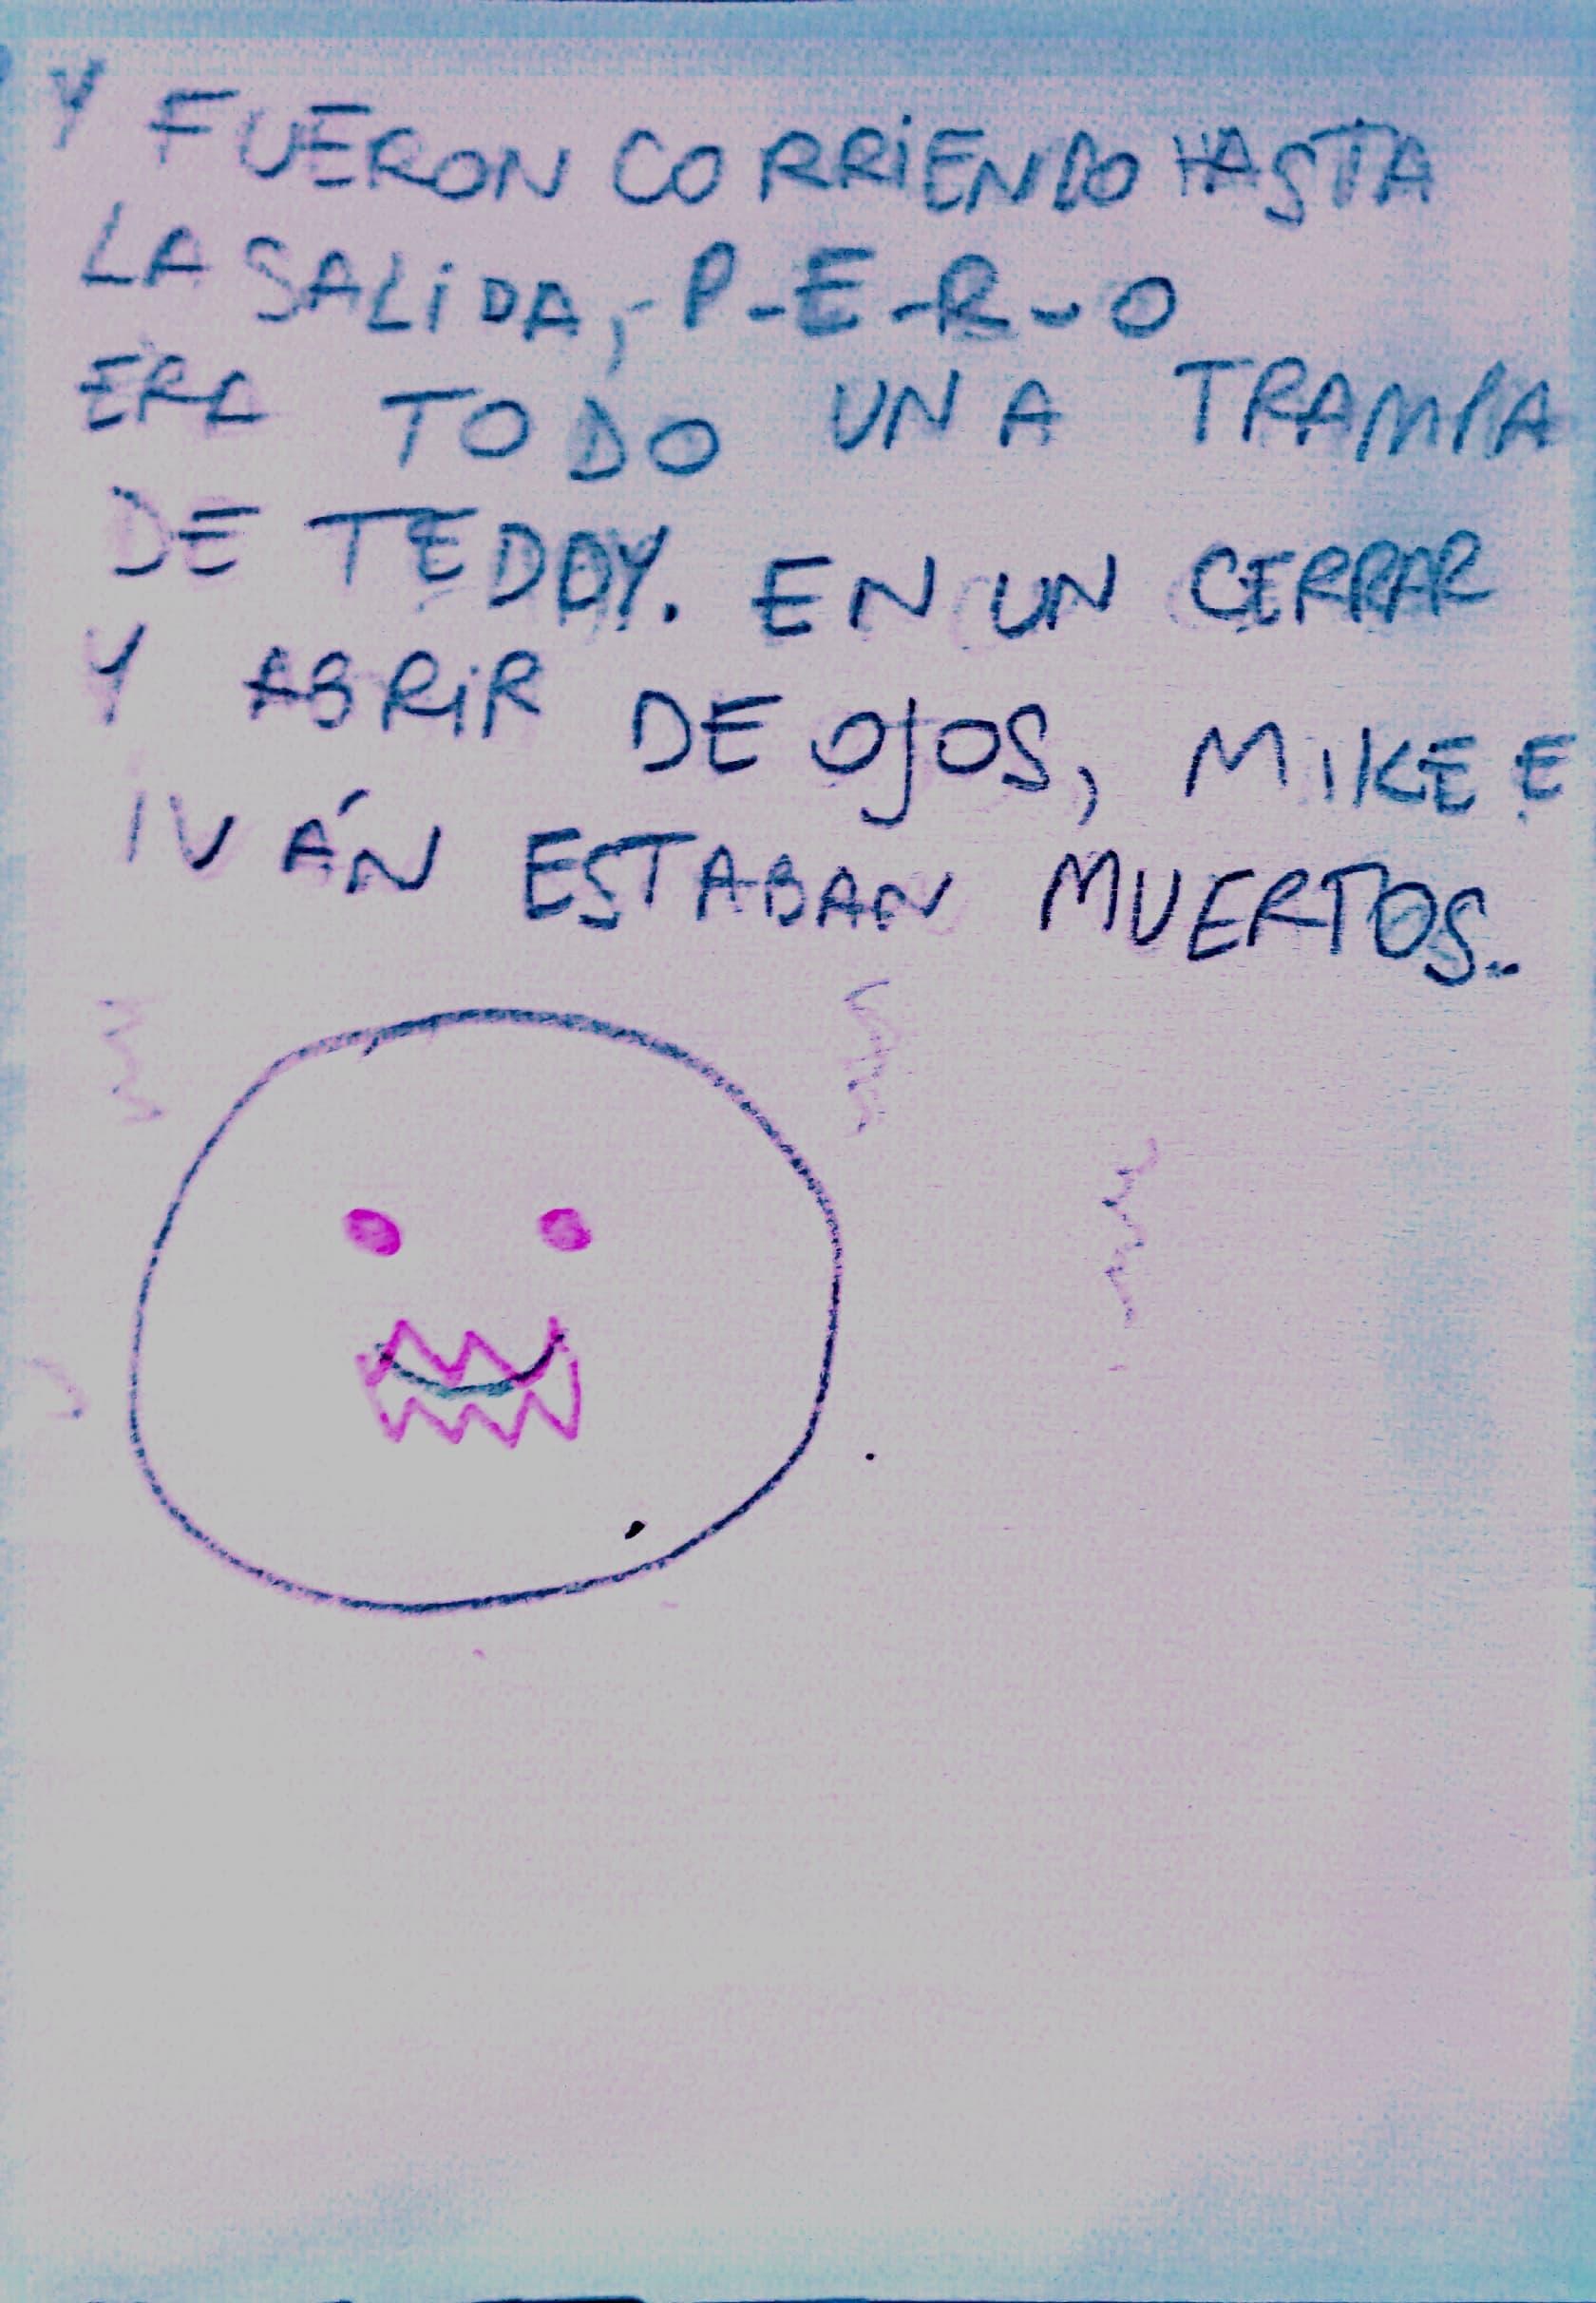 Y FUERON CORRIENDO HASTA
LA SALIDA, P-E-R-O
ERA TODO UNA TRAMPA
DE TEDDY. EN UN CERRAR
Y ABRIR DE OJOS, MIKE E
IVÁN ESTABAN MUERTOS..